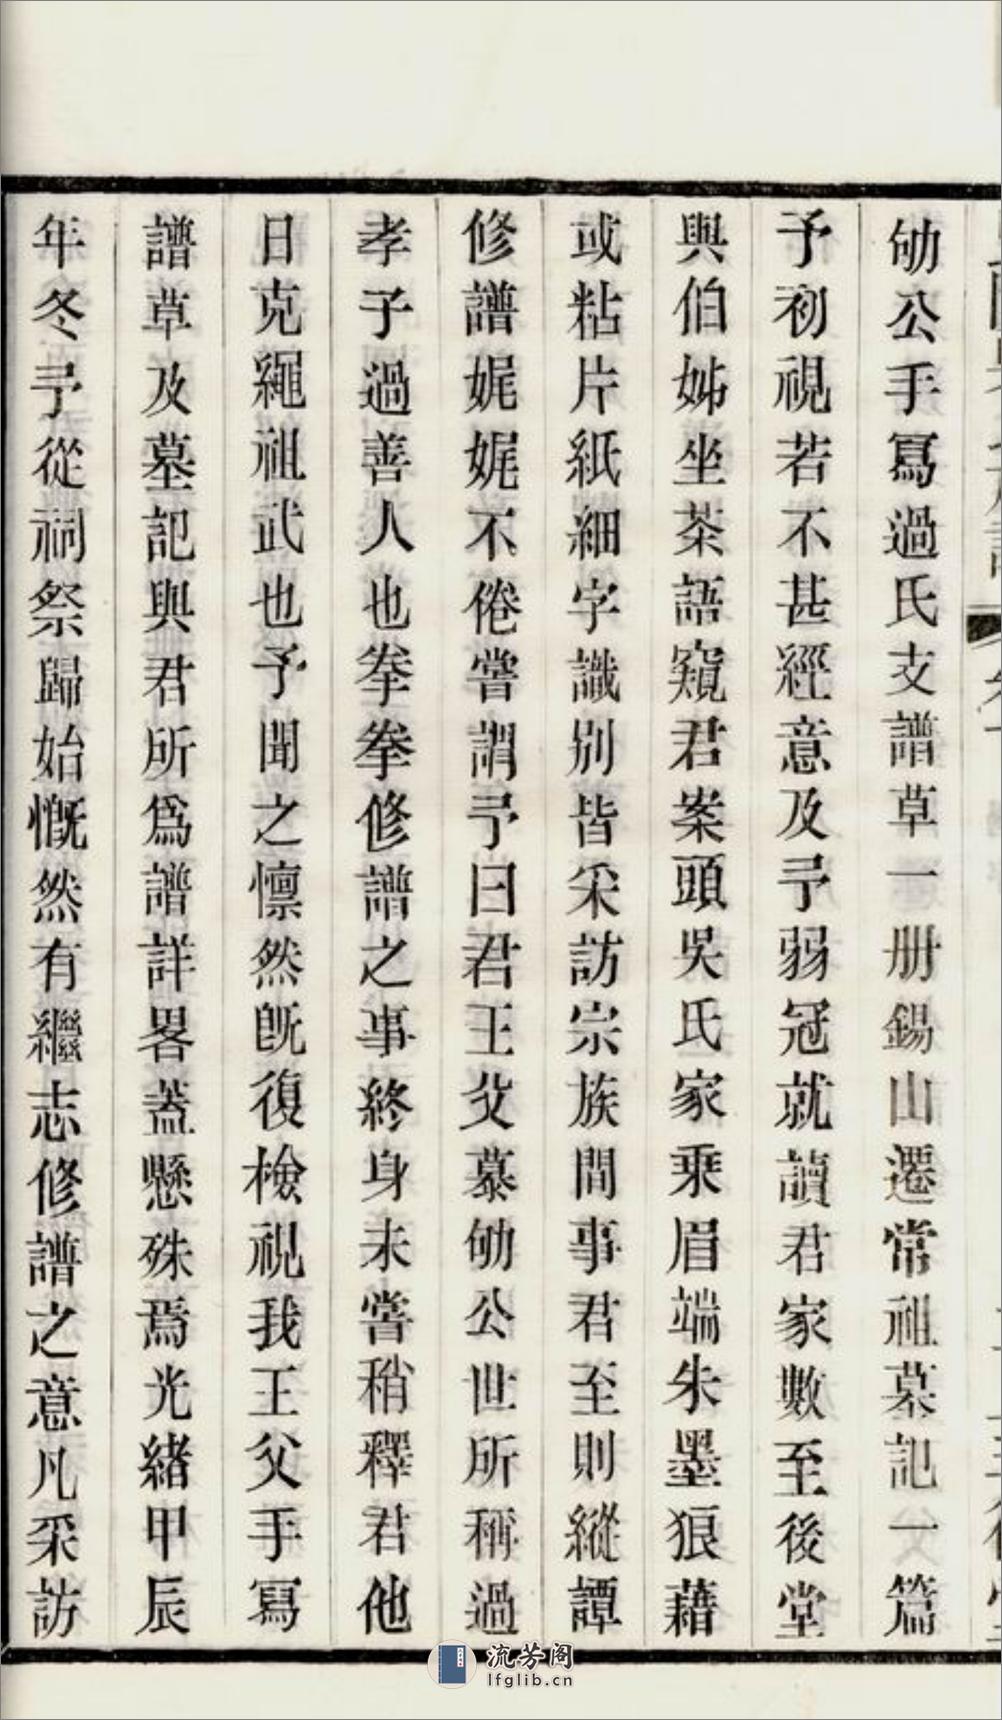 劬公手寫過氏支譜草一册錫山遷常祖墓記一篇
予初視若不甚經意及予弱冠就讀君家數至後堂
與伯姊坐茶語窺君案頭吳氏家乘眉端朱墨狼藉
或粘片紙細字識别皆采訪宗族間事君至則縱譚
修譜娓娓不倦嘗謂予曰君王父慕劬公世所稱過
孝子過善人也拳拳修譜之事終身未嘗稍釋君他
日克繩祖武也予聞之懔然旣復檢視我王父手寫
譜草及墓記與君所爲譜詳畧蓋懸殊焉光緒甲辰
年冬予從祠祭歸始慨然有繼志修譜之意凡采訪
流芳阁
lfglib.cn